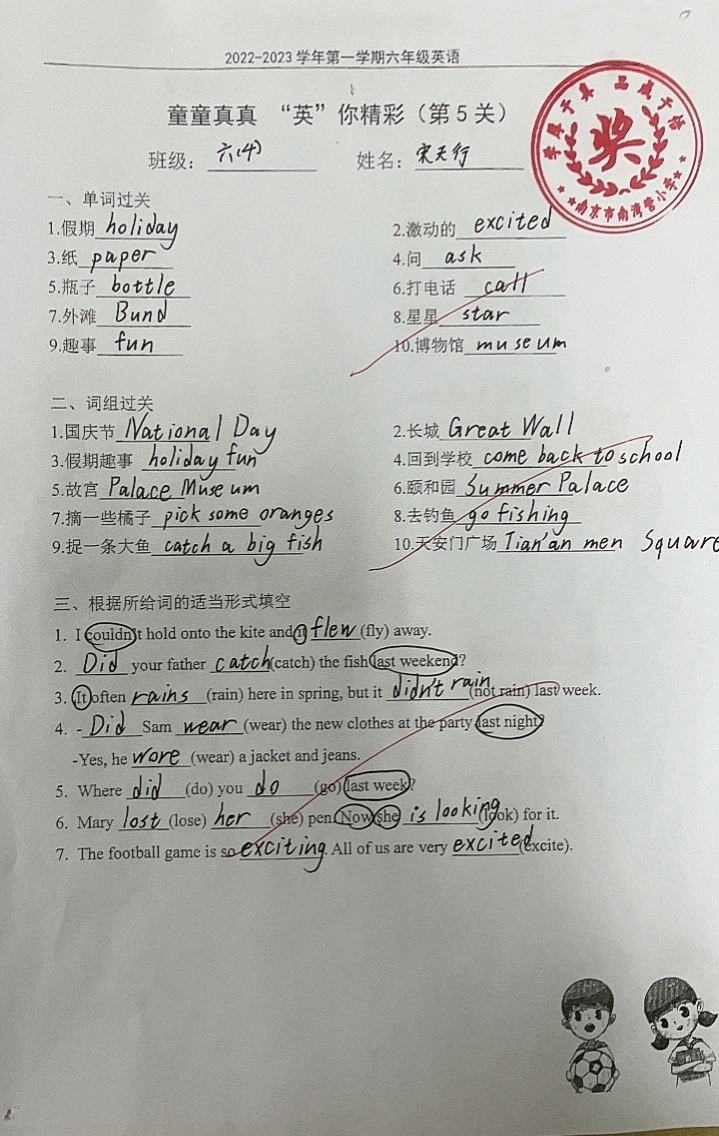 2022-2023 学年第一学期六年级英语
童童真真 “英”你精彩（第 5 关）
班级： 六(4) 姓名： 宋天行
一、单词过关
1.假期 holiday 2.激动的 excited
3.纸 paper 4.问 ask
5.瓶子 bottle 6.打电话 call
7.外滩 Bund 8.星星 star
9.趣事 fun 10.博物馆 museum
二、词组过关
1.国庆节 National Day 2.长城 Great Wall
3.假期趣事 holiday fun 4.回到学校 come back to school
5.故宫 Palace Museum 6.颐和园 Summer Palace
7.摘一些橘子 pick some oranges 8.去钓鱼 go fishing
9.捉一条大鱼 catch a big fish 10.天安门广场 Tian'an men Square
三、根据所给词的适当形式填空
1. I couldn't hold onto the kite and it flew (fly) away.
2. Did your father catch (catch) the fish last weekend?
3. It often rains (rain) here in spring, but it didn't rain (not rain) last week.
4. - Did Sam wear (wear) the new clothes at the party last night?
-Yes, he wore (wear) a jacket and jeans.
5. Where did (do) you do (go) last week?
6. Mary lost (lose) her (she) pen. Now she is looking (look) for it.
7. The football game is so exciting. All of us are very excited (excite).
奖
南京市南湾营小学